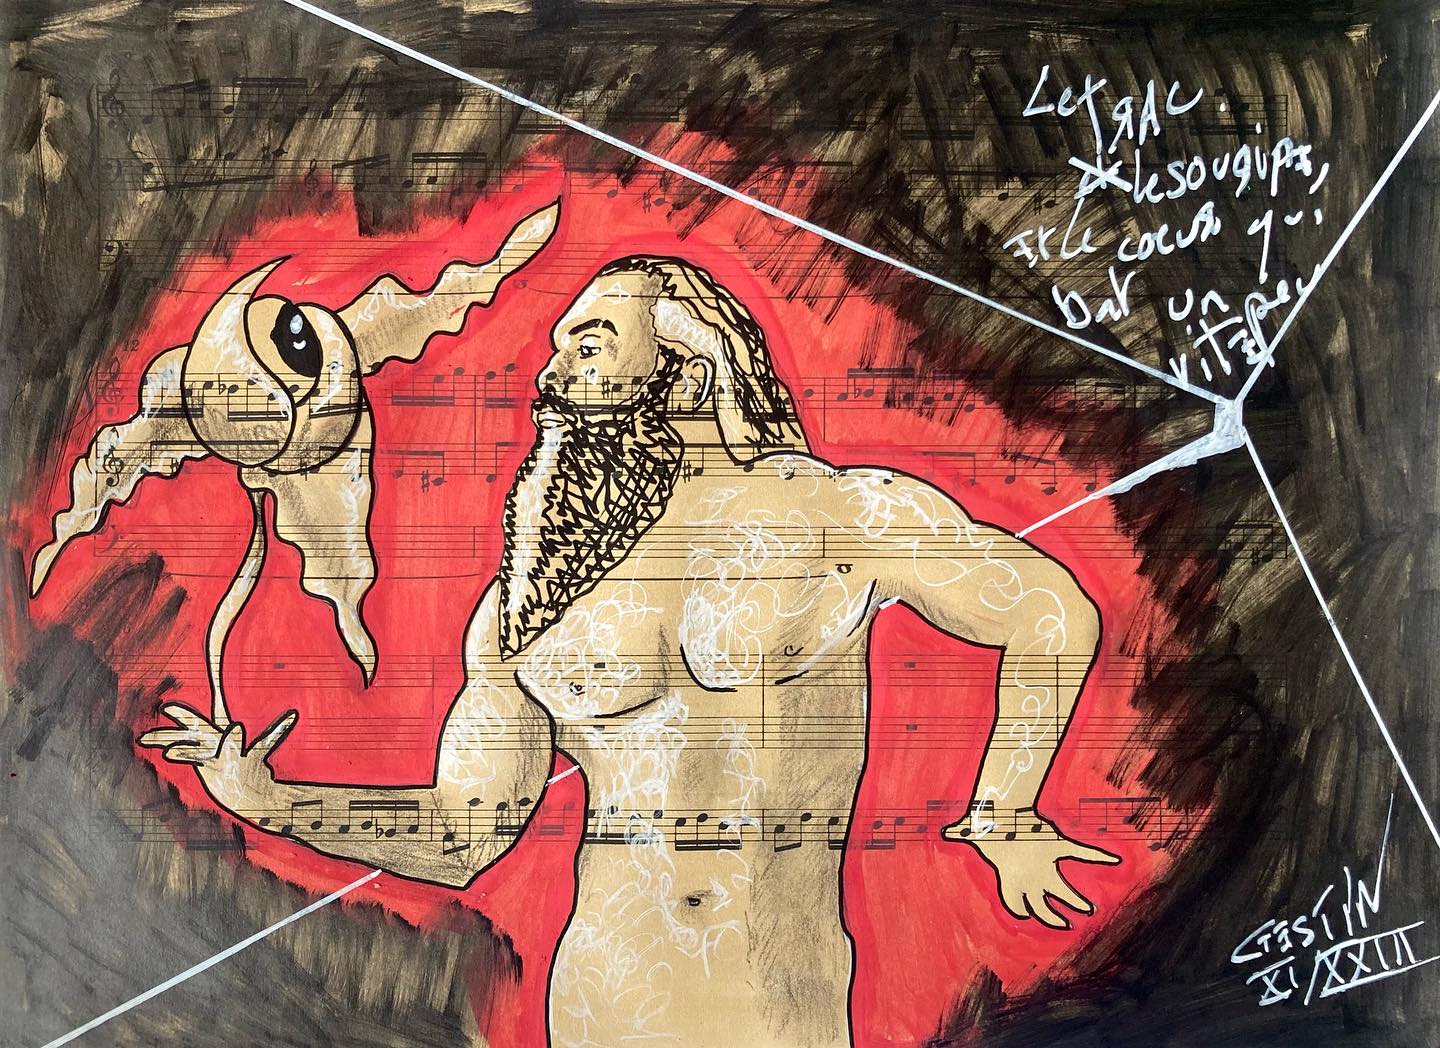 Le tRAC.
le souRiRe,
Et le coeuR qui
bat un
vite peu
CTESTIN
XI/XXIII
12